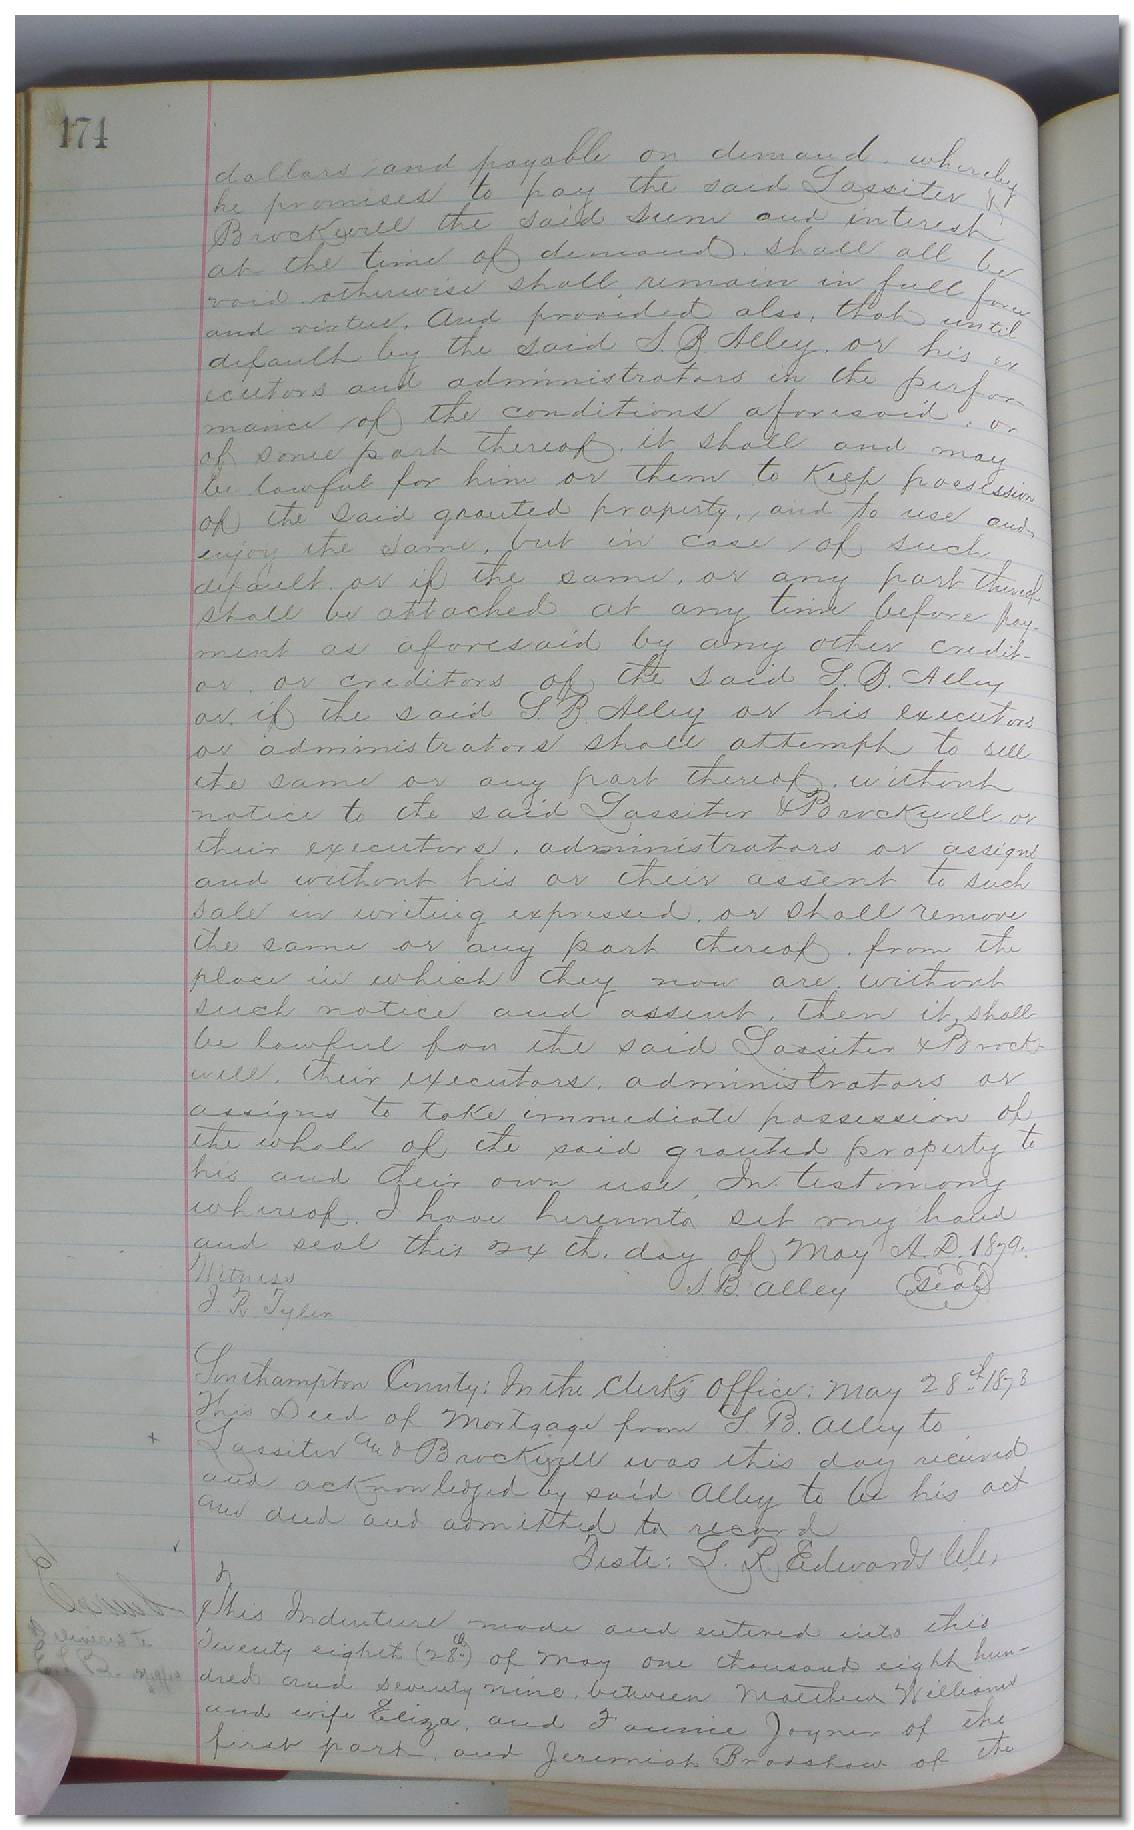 174
dollars and payable on demand. whereby
he promises to pay the said Lassiter &
Brockwell the said sum and interest
at the time of demand. shall all be
void otherwise shall remain in full force
and virtue. And provided also, that until
default by the said S. B. Alley. or his ex
ecutors and administrators in the perfor
mance of the conditions aforesaid, or
of some part thereof. it shall and may
be lawful for him or them to Keep possession
of the said granted property, and to use and
enjoy the same, but in case of such
default or if the same, or any part thereof
shall be attached at any time before pay-
ment as aforesaid by any other credit-
or. or creditors of the said S. B. Alley
or if the said S B Alley or his executors
or administrators shall attempt to sell
the same or any part thereof. without
notice to the said Lassiter & Brockwell or
their executors, administrators or assigns
and without his or their assent to such
sale in writing expressed. or shall remove
the same or any part thereof. from the
place in which they now are without
such notice and assent, then it shall
be lawful for the said Lassiter & Brock-
well, their executors, administrators or
assigns to take immediate possession of
the whole of the said granted property to
his and their own use, In testimony
whereof. I have hereunto set my hand
and seal this day of May A.D. 1879.
Witness S B. Alley Seal
J R. Tyler
Southampton County: In the Clerks Office: May 28th 1873
This Deed of Mortgage from S. B. Alley to
Lassiter and Brockwell was this day received
and acknowledged by said Alley to be his act
and deed and admitted to record
Teste: L. R. Edwards
This Indenture made and entered into this
Twenty eight (28th) of May one thousand eight hun-
dred and seventy nine. between Matthew Williams
and wife Eliza, and Fannie Joyner of the
first part, and Jeremiah Bradshaw of the